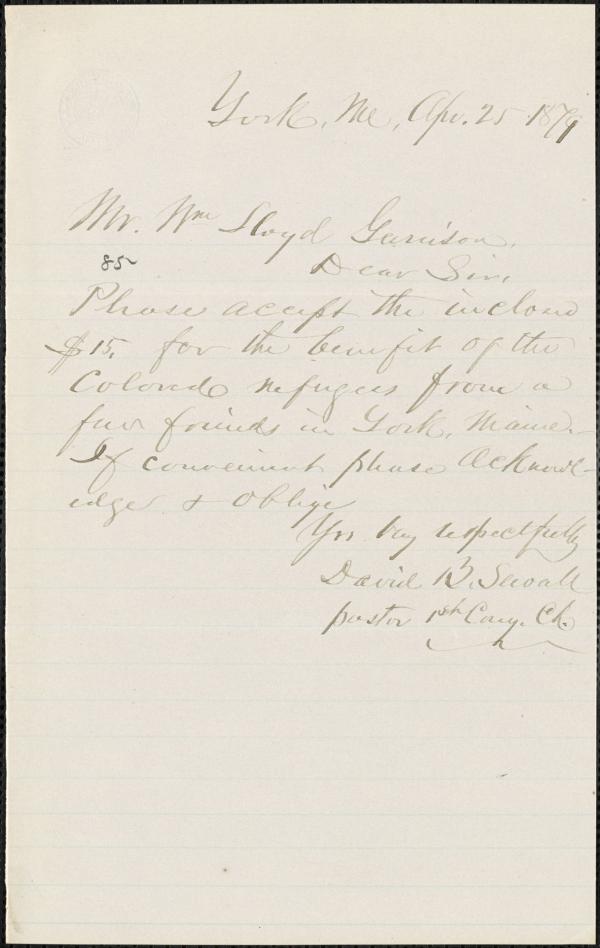 York, Me, Apr. 25 1879
Mr. Wm Lloyd Garrison,
85
Dear Sir,
Please accept the inclosed
$15. for the benefit of the
Colored refugees from a
few friends in York, Maine.
If convenient please acknowl-
edge & oblige
Yrs very respectfully
David B. Sewall
pastor 1st Cong. Ch.